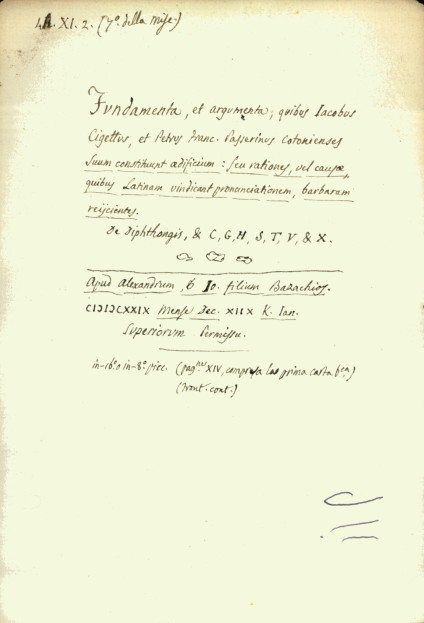 4A. XI. 2. (7º. della Misc.)
Fvndamenta, et argumenta, quibus Iacobus
Cigettus, et Petrus Franc. Passerinus Cotonienses
suum constituunt ædificium: seu rationes, vel causæ,
quibus Latinam vindicant pronunciationem, barbaram
reijcientes.
De Diphthongis, & C, G, H, S, T, V, & X.
Apud Alexandrum, & Io. filium Bazachios.
CIƆIƆCXXIX Mense Dec. XIIX K. Ian.
Superiorum Permissu.
in-16º o in-8º picc. (pag.ne XIV, compresa la prima carta
(front. cont.)